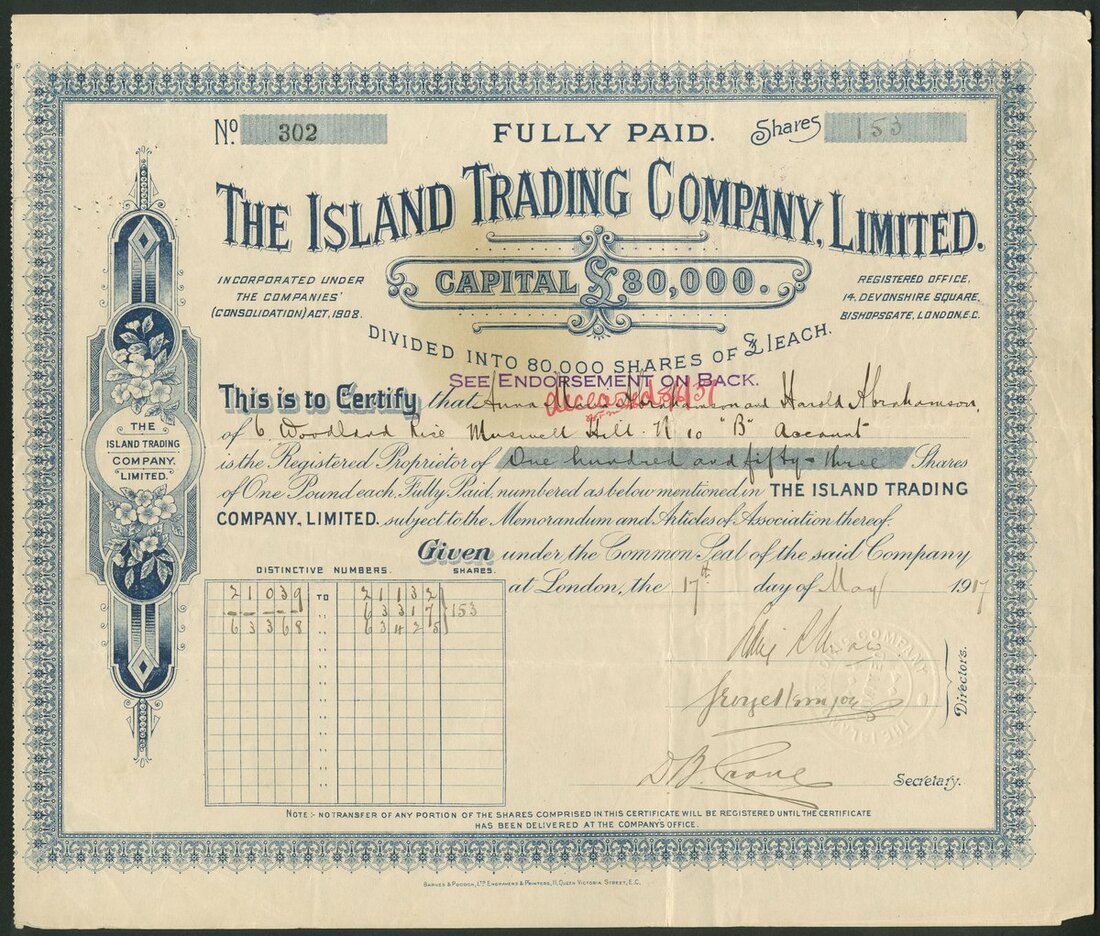 No. 302
FULLY PAID.
Shares 153
THE ISLAND TRADING COMPANY, LIMITED.
INCORPORATED UNDER
THE COMPANIES'
(CONSOLIDATION) ACT, 1908.
CAPITAL £80,000.
REGISTERED OFFICE,
14, DEVONSHIRE SQUARE,
BISHOPSGATE, LONDON, E.C.
DIVIDED INTO 80,000 SHARES OF £1 EACH.
SEE ENDORSEMENT ON BACK.
deceased
This is to Certify that Anna Abrahamson and Harold Abrahamson,
of 6 Woodland Rise Muswell Hill. N 10 "B" Account
is the Registered Proprietor of One hundred and fifty-three Shares
of One Pound each, Fully Paid, numbered as below mentioned in THE ISLAND TRADING
COMPANY, LIMITED. subject to the Memorandum and Articles of Association thereof.
Given under the Common Seal of the said Company
at London, the 17th day of May 1917
THE
ISLAND TRADING
COMPANY,
LIMITED.
DISTINCTIVE NUMBERS. SHARES.
21039 TO 21132
63317 153
63368 " 63425
Directors.
Secretary.
NOTE:- NO TRANSFER OF ANY PORTION OF THE SHARES COMPRISED IN THIS CERTIFICATE WILL BE REGISTERED UNTIL THE CERTIFICATE
HAS BEEN DELIVERED AT THE COMPANY'S OFFICE.
BARNES & POCOCK, LTD. ENGRAVERS & PRINTERS, 11, QUEEN VICTORIA STREET, E.C.